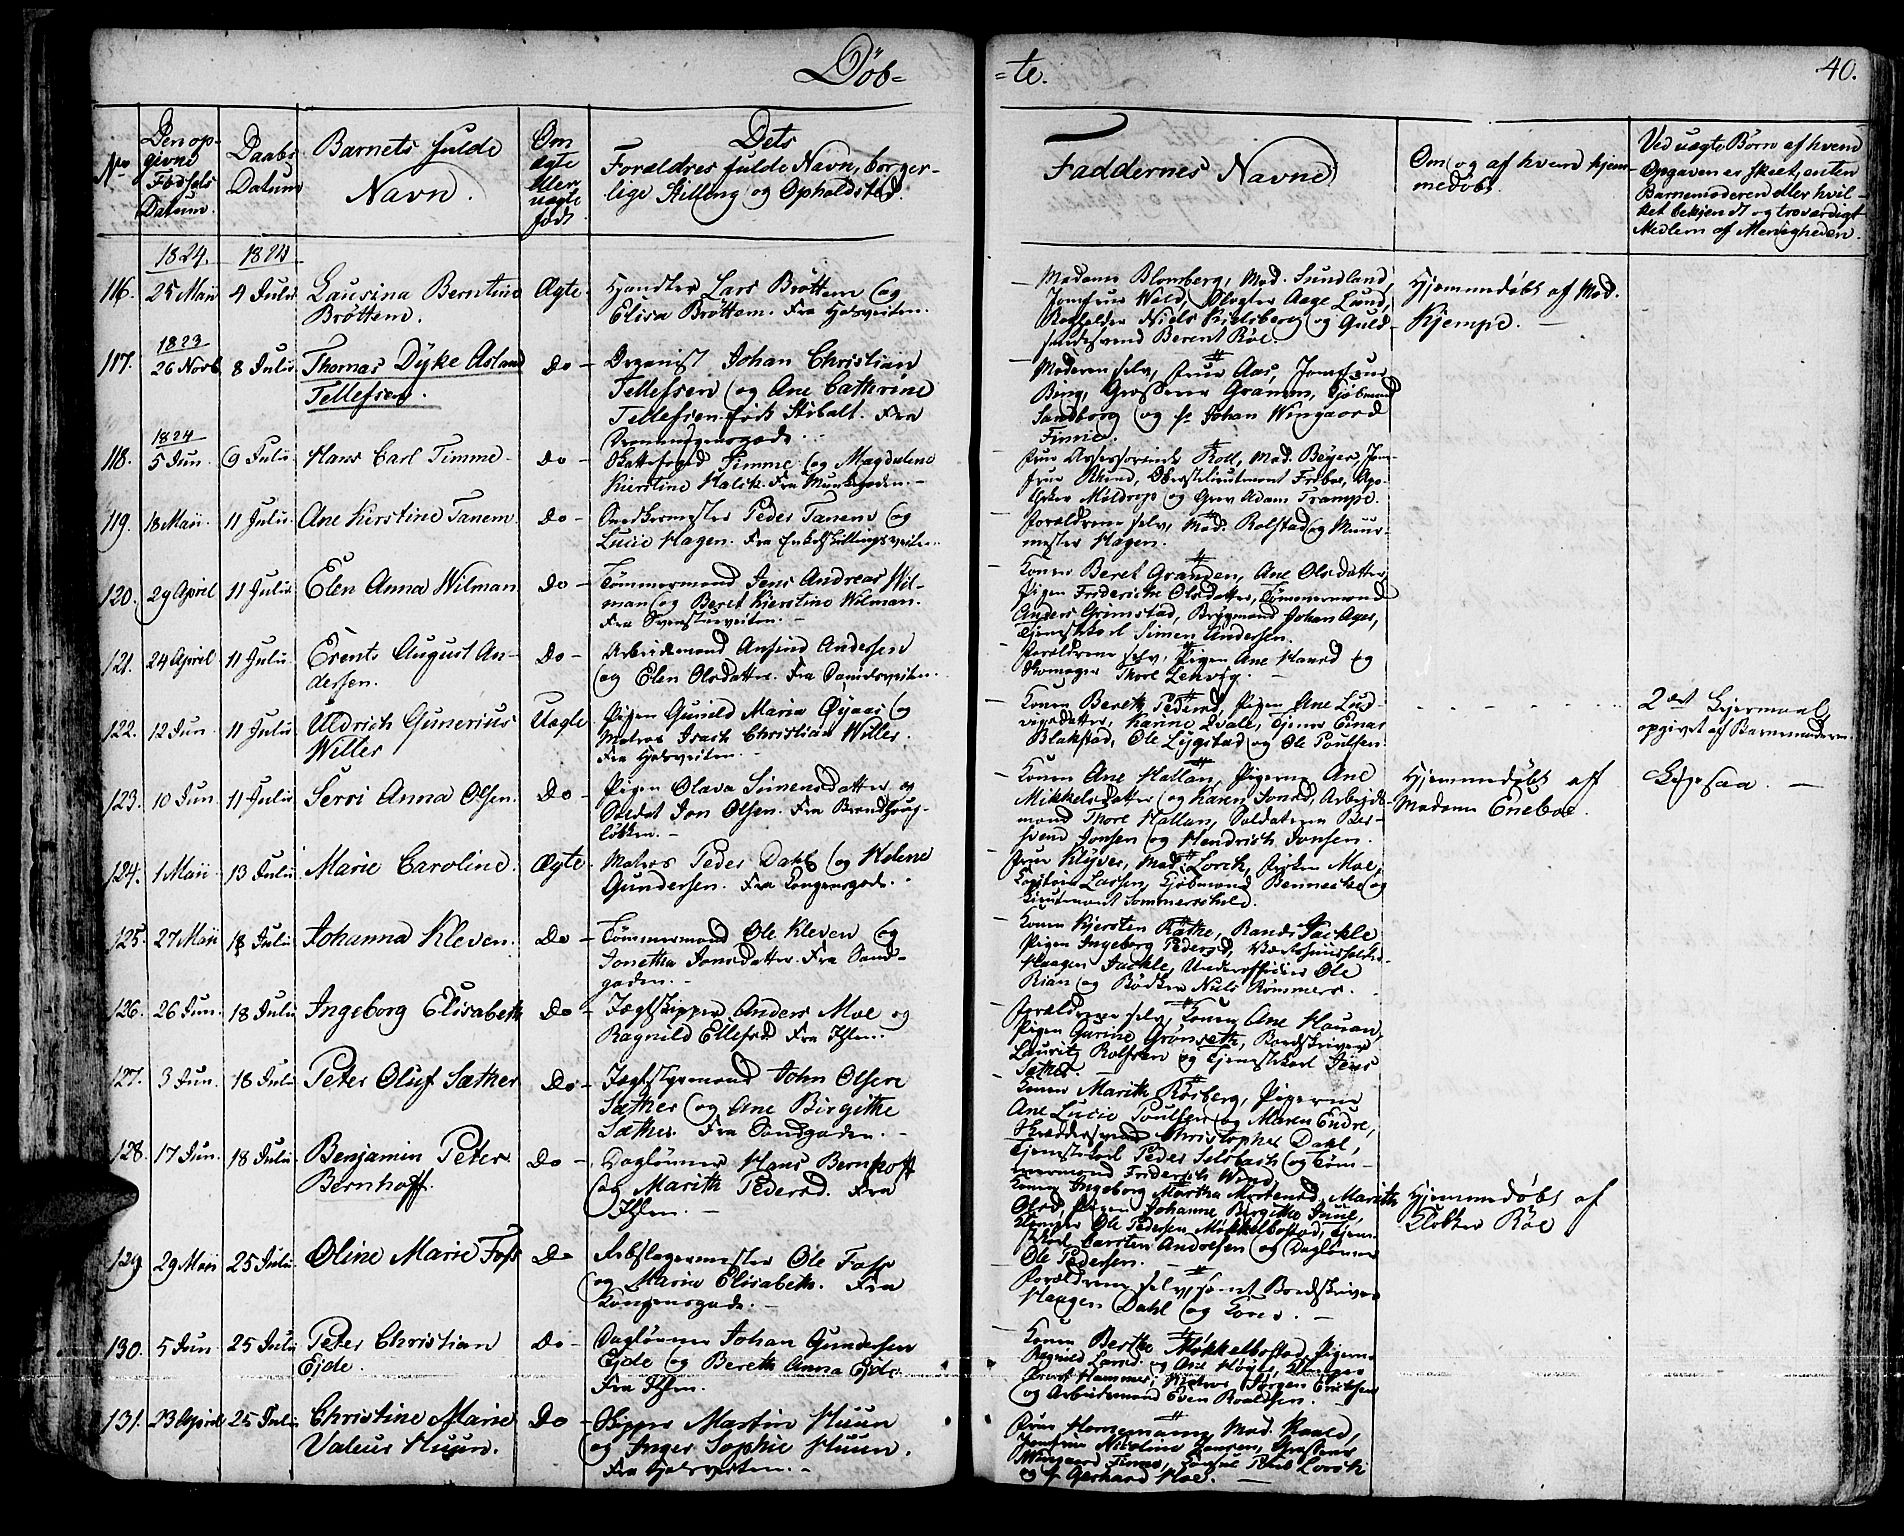 Døb-
-te.
40.
No
Den op-
givne
Fødsels
Datum.
Daabs
Datum
Barnets fulde
Navn.
Om
ægte
eller
uægte
født
Dets
Forældres fulde Navn, borger-
lige Stilling og Opholdsted.
Faddernes Navne
Om og af hvem hjem-
medøbt.
Ved uægte Børn af hvem
Opgaven er skeet, enten
Barnemoderen eller hvil-
ket bekjendt og troværdigt
Medlem af Menigheden.
1824.
1824
116. 25 Maii 4 Julii Lausina Berntine Ægte
Brøttem.
Lars Brøttem og
Elisa Brøttem. Fra Hosveiten.
Madame Blomberg, Mad. Sundland,
Jomfrue Wold, Aage Lund,
Niels Kielsberg og Guld-
smedsvend Berent Røe.
Hjemmedøbt af Mad.
Kjempe.
1823
117. 26 Novb 8 Julii Thomas Dyke Acland Do
Tellefsen.
Organist Johan Christian
Tellefsen og Ane Cathrine
Tellefsen født Stibolt. Fra
Dronningensgade.
Moderen selv, Frue Aas, Jomfrue
Bing, Grosserer Gramm, Kjøbmand
Sandborg og Hr Johan Wingaard
Finne.
1824
118. 5 Jun. 9 Julii Hans Carl Timme Do
Skattefoged Timme og Magdalene
Kierstine Halck. Fra Munkegaden.
Frue Assessorinde Roll, Mad. Beyer, Jom-
frue Oberstlieutnant Freboe, Apo-
theker Møldrup og Grev Adam Trampe.
119. 18 Maii 11 Julii Ane Kirstine Tanem. Do
Snedkermester Peder Tanem og
Lucie Hagen. Fra Enkedskillingsveiten.
Forældrene selv, Mad. Rolstad og Muur-
mester Hagen.
120. 29 April 11 Julii Elen Anna Wilman Do
Tømmermand Jens Andreas Wil-
man og Beret Kjerstine Wilman.
Konen Beret Granden, Ane Olsdatter,
Pigen Friderikke Olsdatter, Tømmermand
Anders Grimstad, Johan Ager,
Tjenestkarl Simen Andersen.
121. 24 April 11 Julii Erents August An- Do
dersen.
Arbeidsmand Andersen
og Elen Olsdatter. Fra
Forældrene selv, Pigen Ane Hansd og
Skomager Thore Lenvig.
122. 12 Jun. 11 Julii Uldrich Gunerius Uægte
Willer
Pigen Gunild Maria Øyaas og
Matros Isach Christian Willer.
Fra Hosveiten.
Konen Bereth Pedersd, Pigen Ane Lud-
vigsdatter, Karine Qvale, Tjener Einar
Blakstad, Ole Lygstad og Ole Poulsen
2det Leiermaal,
opgivet af Barnemoderen.
123. 10 Jun. 11 Julii Serri Anna Olsen. Do
Pigen Olava Simensdatter og
Soldat Jon Olsen. Fra
løkken.
Konen Ane Hallan, Pigerne Ane
Mikkelsdatter og Karen Jonsd, Arbeids-
mand Thore Hallan, Soldaterne Ber-
Jonsen og Hendrich Jonsen.
Hjemmedøbt af
Madame Eneboe.
Ligesaa.
124. 1 Maii 13 Julii Marie Caroline. Ægte
Matros Peder Dahl og Helene
Gundersen. Fra Kongensgade.
Frue Klyver, Mad. Lorck, Frøken Moe,
Capitain Lassen, Kjøbmand Benneche og
Lieutenant Sommerschield.
125. 27 Maii 18 Julii Johanna Kleven. Do
Tømmermand Ole Kleven og
Jonetha Jonsdatter. Fra Sand-
gaden.
Konen Kjersten Rathe, Randi Jackle
Pigen Ingeborg Pedersd, Værtshuusholder
Haagen Jackle, Underofficier Ole
Rian og Bødker Niels Rømmers.
126. 26 Jun. 18 Julii Ingeborg Elisabeth Do
Jægtskipper Anders Moe og
Ragnild Ellefsd Fra Ihlen.
Forældrene selv, Konen Ane Hauan,
Pigen Gurine Grønseth, Bordskriver
Lauritz Rolfsen og Tjenestkarl Jens
Sæther
127. 3 Jun. 18 Julii Peter Oluf Sæther Do
Jægtstyrmand John Olsen
Sæther og Ane Birgithe
Sæther. Fra Sandgaden.
Konen Marith Røsberg, Pigerne
Ane Lucie Poulsen og Maren Endre,
Skræddersvend Christopher Dahl,
Tjenestkarl Peder Selsbach og Tøm-
mermand Friderich Wind.
128. 17 Jun. 18 Julii Benjamin Peter Do
Bernhoff.
Dagløner Hans Bernhoff
og Marith Pedersd. Fra
Ihlen.
Konen Ingeborg Martha Mortensd, Marith
Olsd, Pigen Johanne Birgitha Juul,
Ole Pedersen Møkkelbostad, Tjene-
stkarl Carsten Andresen og Dagløner
Ole Pedersen.
Hjemmedøbt af
Klokker Røe
129. 29 Maii 25 Julii Oline Marie Foss Do
Ole Foss
og Marie Elisabeth. Fra
Kongensgade.
Forældrene selv, samt Bordskriver
Haagen Dahl og Kone.
130. 5 Jun. 25 Julii Peter Christian Do
Ejde.
Dagløner Johan Gundersen
Ejde og Bereth Anna Ejde
Fra Ihlen.
Konen Berthe Møkkelbostad, Pigerne
Ragnild Larsd. og Ane Høyls,
Hammer, Matros Jørgen Erichsen
og Arbeidsmand Even Roaldsen.
131. 23 April 25 Julii Christine Marie Do
Valeur Huun.
Skipper Martin Huun
og Inger Sophie Huun.
Fra Hosveiten.
Frue Hornemann, Mad. Roald,
Jomfrue Nicoline Jensen, Grosserer
Wingaard Finne, Consul Lorck
og Hr Gerhard Moe.